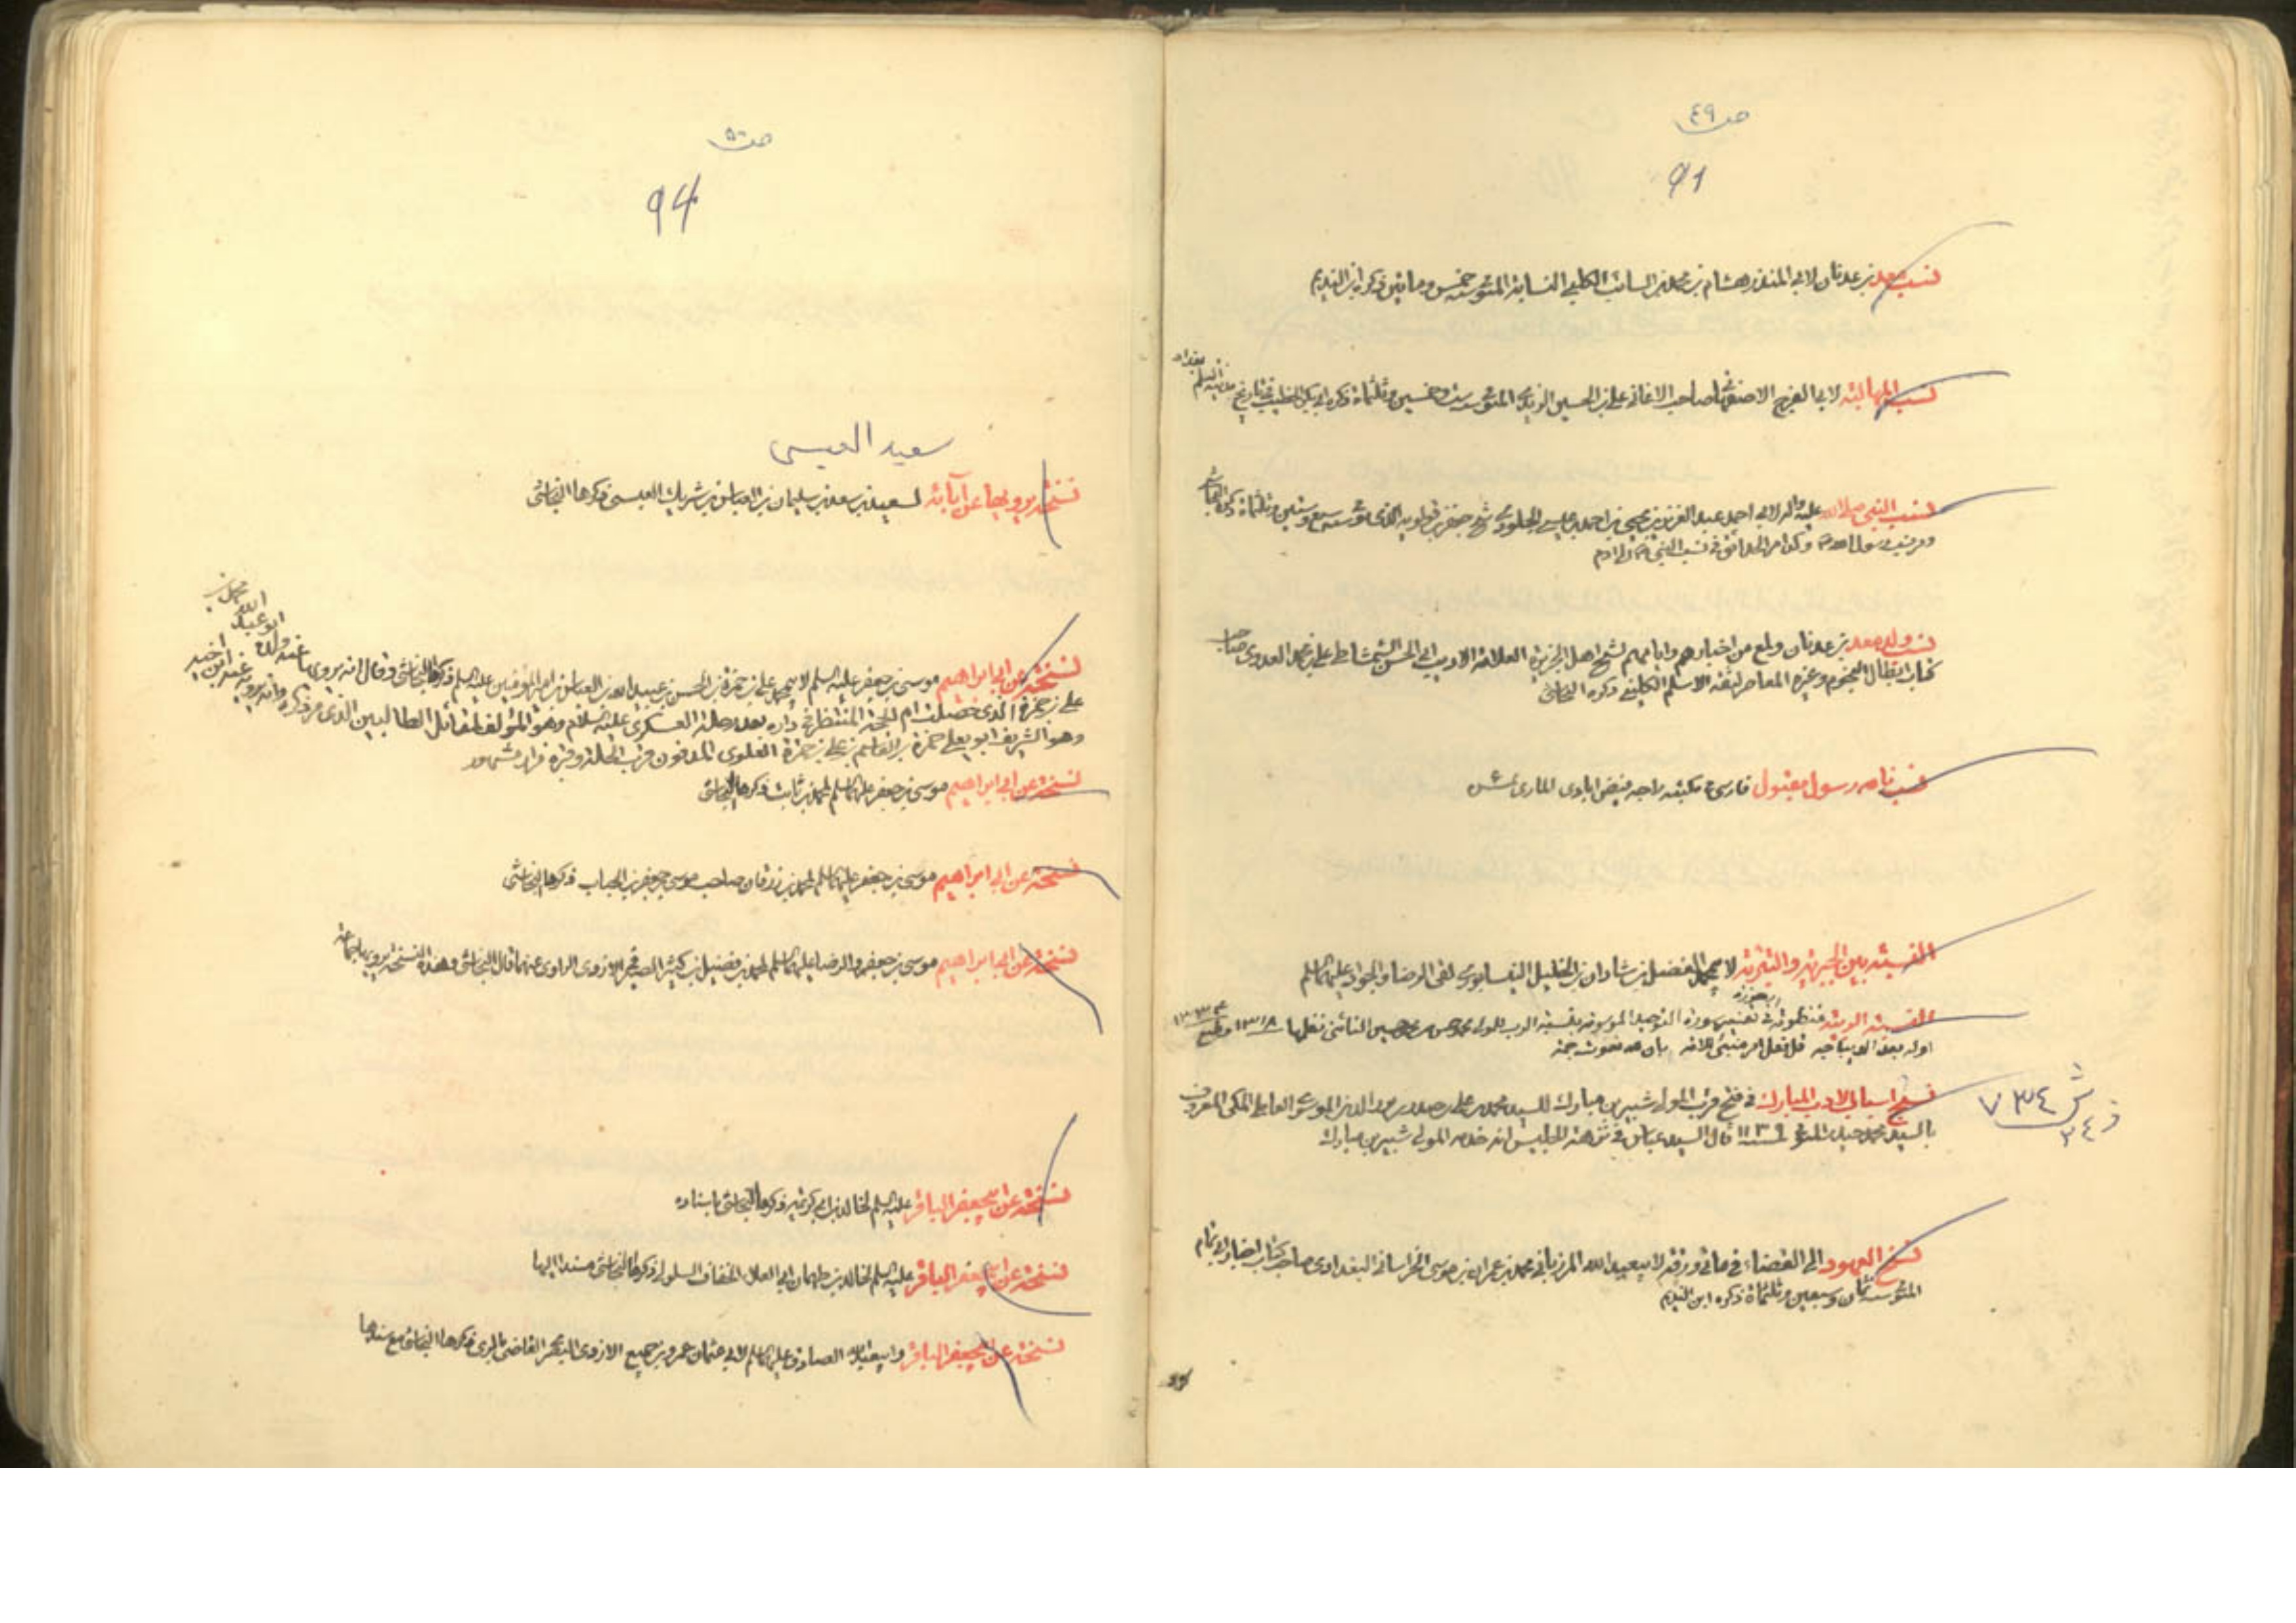 ص ٤٩
91
نسب معد بن عدنان لابي المنذر هشام بن محمد بن السائب الكلبي النسابة المتوفى سنة خمس ومايتين ذكره ابن النديم
نسب المهالبة لابي الفرج الاصفهاني صاحب الاغاني علي بن الحسين الزيدي المتوفى سنة ست وخمسين وثلثمائة ذكره ابو بكر الخطيب في تاريخ مدينة السلم بغداد
نسب النبي صلى الله عليه واله لابي احمد عبد العزيز بن يحيى بن احمد بن عيسى الجلودي شيخ جعفر بن قولويه الذي توفى سنة سبع وستين وثلثمائة ذكره النجاشي
ومر نسب رسول الله ص وكذا مر الحدائق في نسب النبي ص الى ادم
نسب ولد معد بن عدنان ولمع من اخبارهم وايامهم لشيخ اهل الجزيرة العلامة الاديب ابي الحسن الشمشاطي علي بن محمد العدوي صاحب
كتاب ابطال النجوم وغيره المعاصر لثقة الاسلم الكليني ذكره النجاشي
نسب نامه رسول مقبول فارسي في مكتبة راجه فيض ابادي الماري
النسبة بين الجبرية والثنوية لابي محمد الفضل بن شاذان بن الخليل النيسابوري لقى الرضا والجواد عليهما السلم
النسبة الربية منظومة في تفسير سورة التوحيد الموسومة بنسبة الرب للمولى محمد حسن بن محمد حسين النائني نظمها ١٣١٨ وطبع
اوله بعد الديباجه
نسج اسباب الادب المباركة في فتح قرب المولى شبير بن مبارك للسيد محمد بن علي بن حيدر بن نور الدين الموسوي العاملي المكي المعروف
بالسيد محمد حيدر المتوفى سنة ١١٣٩ قال السيد عباس في نزهة الجليس انه خدم المولى شبير بن مبارك
ش ٧٣٤
ز ٣٤
نسخ العهود الى القضاة في مائتي ورقة لابي عبيد الله المرزباني محمد بن عمران بن موسى الخراساني البغدادي صاحب كتاب اخبار ابي تمام
المتوفى سنة ثمان وسبعين وثلثمائة ذكره ابن النديم
ص ٥٠
94
سعيد العبسى
نسخة يرويها عن آبائه لسعيد بن سعد بن سليمان بن العباس بن شريك العبسى ذكرها النجاشي
نسخة عن ابي ابراهيم موسى بن جعفر عليه السلم لابي محمد علي بن حمزة بن الحسن بن عبيد الله بن العباس بن امير المؤمنين عليه السلم ذكرها النجاشي وقال انه يرويها عنه ولده ابو عبد الله محمد بن
علي بن حمزة الذي حصلت ام الحجة المنتظر في داره بعد رحلة العسكري عليه السلام وهو المؤلف لمقاتل الطالبيين الذي مر ذكره وانه يرويه عنه ابن اخيه
وهو الشريف ابو يعلى حمزة بن القاسم بن علي بن حمزة العلوي المدفون قرب الحلة وقبره مزار مشهور
نسخة عن ابي ابراهيم موسى بن جعفر عليهما السلم لمحمد بن ثابت ذكرها النجاشي
نسخة عن ابي ابراهيم موسى بن جعفر عليهما السلم لمحمد بن زرقان صاحب موسى بن جعفر بن الحباب ذكرها النجاشي
نسخة عن ابي ابراهيم موسى بن جعفر والرضا عليهما السلم لمحمد بن فضيل بن كثير الصيرفي الازدي الراوي عنهما قال النجاشي وهذه النسخة يرويها جماعة
نسخة عن ابي جعفر الباقر عليه السلم لخالد بن ابي كريمة ذكرها النجاشي باسناده
نسخة عن ابي جعفر الباقر عليه السلم لخالد بن طهمان ابي العلاء الخفاف السلولي ذكرها النجاشي مسندا اليها
نسخة عن ابي جعفر الباقر وابي عبد الله الصادق عليهما السلم لابي عثمان عمرو بن جميع الازدي البصري القاضي بالري ذكرها النجاشي مع سندها